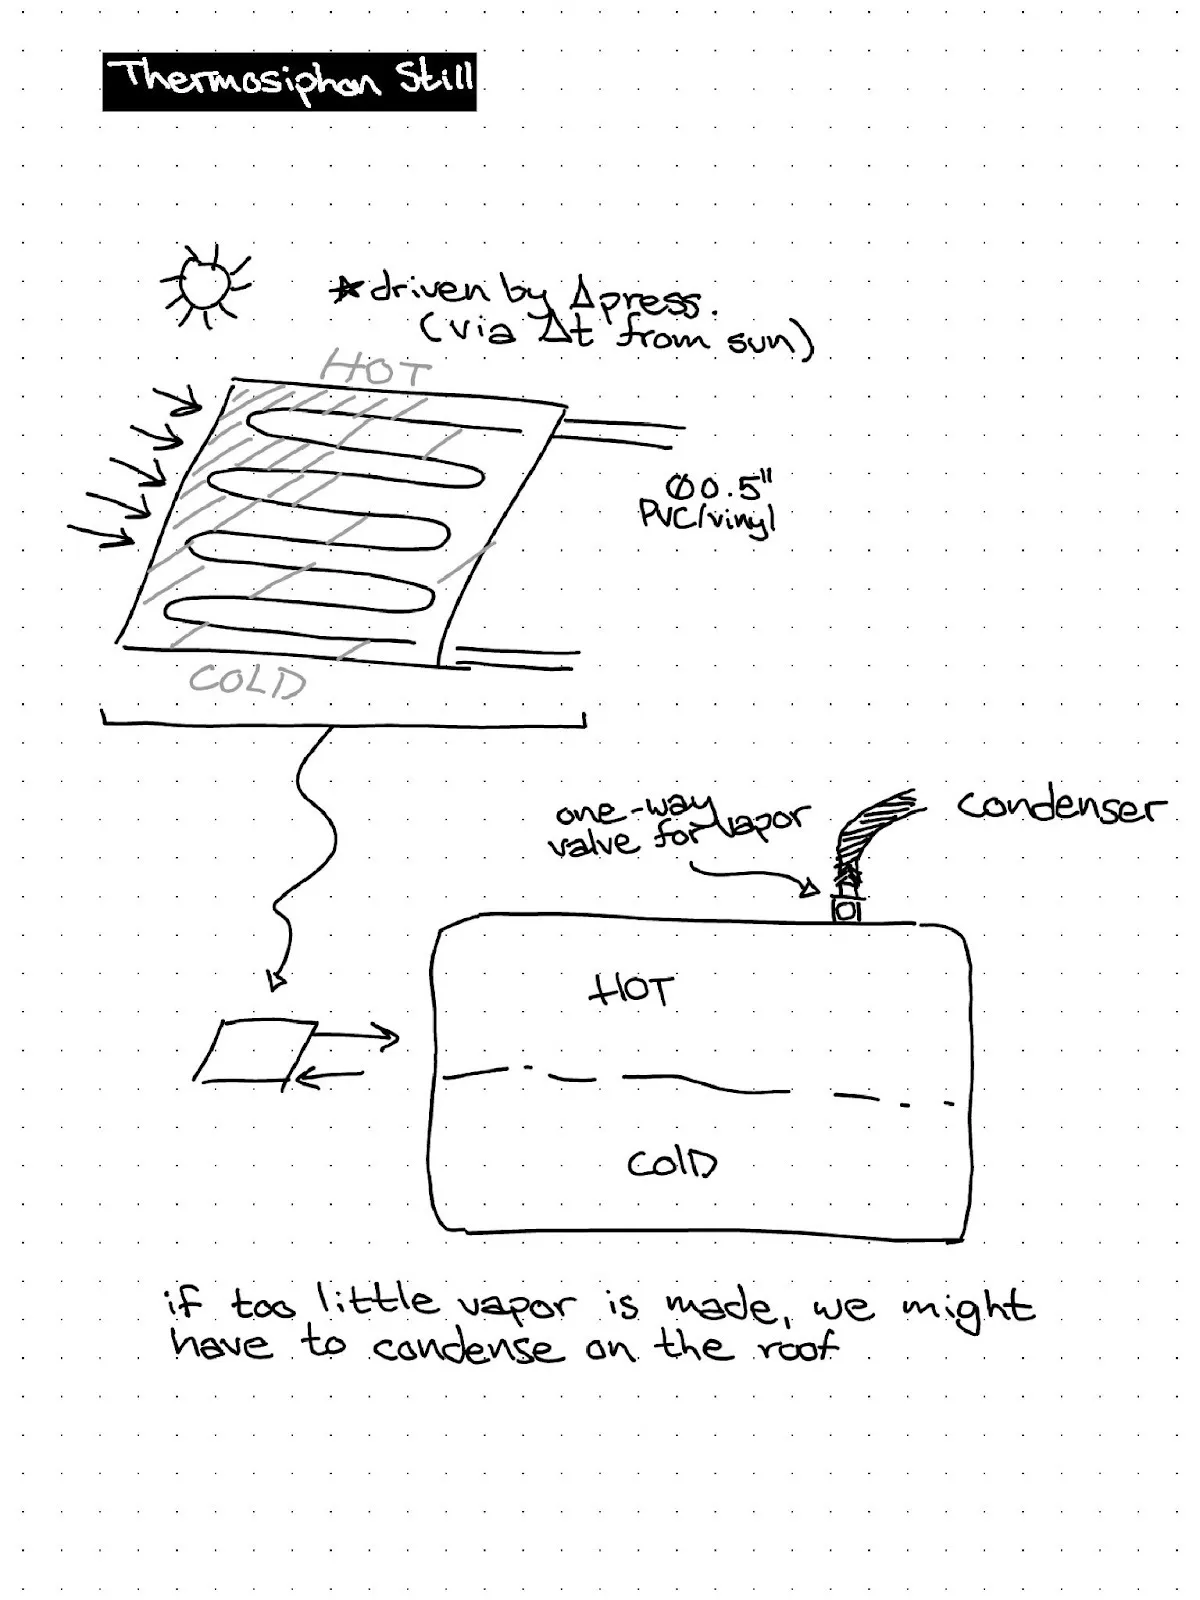 Thermosiphon Still
★ driven by Δpress.
(via Δt from sun)
HOT
Ø0.5"
PVC/vinyl
COLD
one-way
valve for vapor
condenser
HOT
COlD
if too little vapor is made, we might
have to condense on the roof